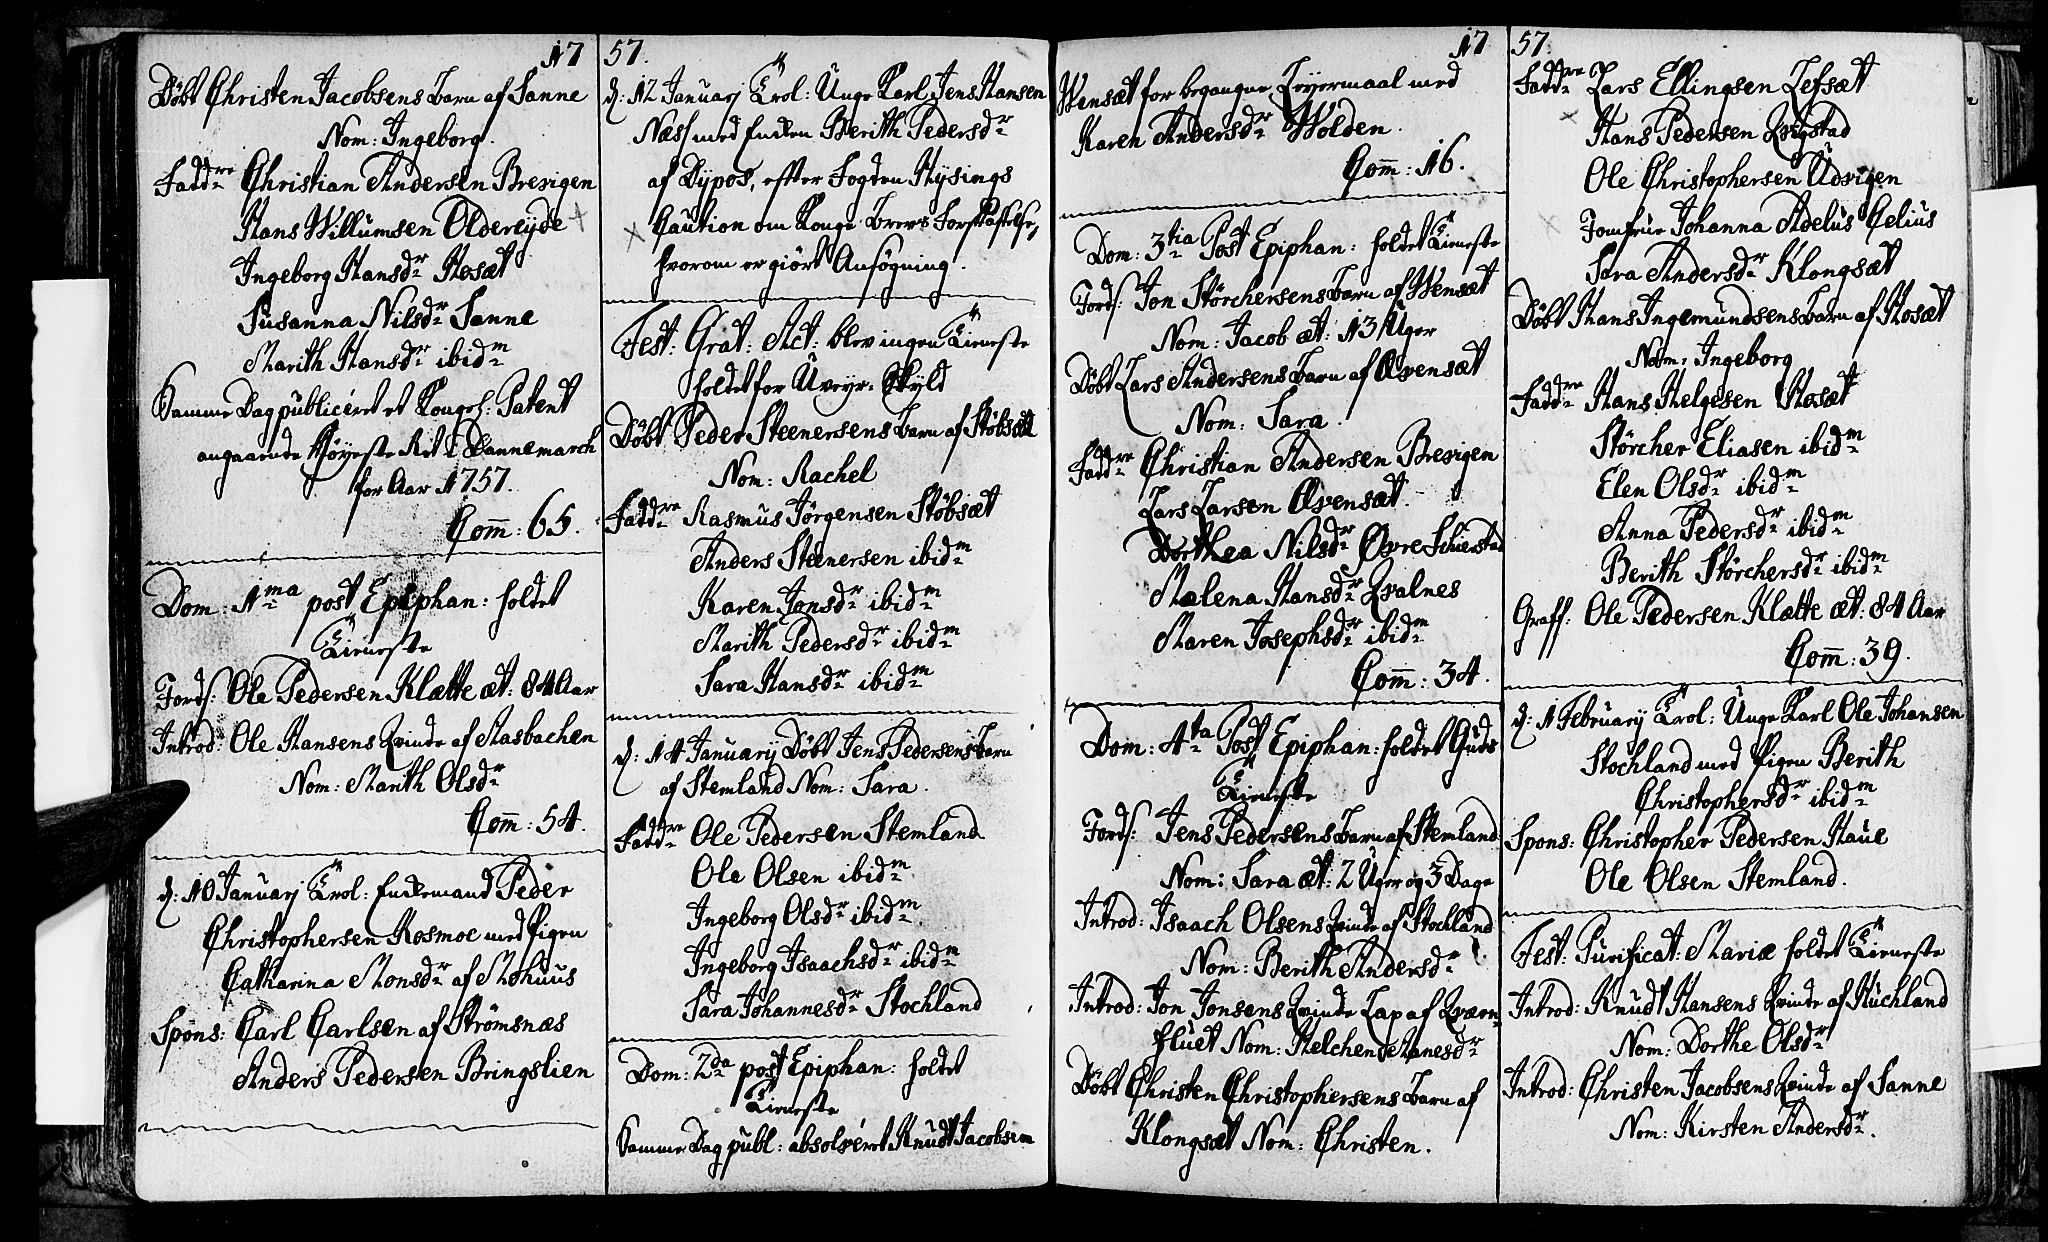 17
Döbt Christen Jacobsens Barn af Sanne
Nom: Ingeborg.
Fadd:re Christian Andersen Bresigen
Hans Willumsen Oldereyde
Ingeborg Hansd:r Hosæt
Susanna Nilsd:r Sanne
Marith Hansd:r ibid:m
Samme Dag publiceret et Kongel: Patent
angaaende Höyeste Ret i Dannemarch
for Aar 1757.
Com̄: 65.
Dom: 1:ma post Epiphan: holdet
Tieneste
Fords: Ole Pedersen Klætte æt: 84 Aar
Introd: Ole Hansens Qvinde af Hasbachen
Nom: Marith Olsd:r
Com̄: 54.
d: 10 Januarj Trol: Enckemand Peder
Christophersen Rosmoe med Pigen
Catharina Monsd:r af Mohuus
Spons: Carl Carlsen af Strömsnæs
Anders Pedersen Bringslien
57.
d: 12 Januarj Trol: Unge Karl Jens Hansen
Næss med Encken Berith Pedersd:r
af Dypos, efter Fogden Hysings
Caution om Konge Brevs Forskaffelse,
hvorom er giört Ansögning.
Fest: Grat: Act: blev ingen Tieneste
holdet for Uveyrs Skyld
Döbt Peder Steenersens Barn af Stöbsæt
Nom: Rachel
Fadd:re Rasmus Jörgensen Stöbsæt
Anders Steenersen ibid:m
Karen Jonsd:r ibid:m
Marith Pedersd:r ibid:m
Sara Hansd:r ibid:m
d: 14 Januarij Döbt Jens Pedersens Barn
af Stemland Nom: Sara.
Fadd:re Ole Pedersen Stemland
Ole Olsen ibid:m
Ingeborg Olsd:r ibid:m
Ingeborg Isaachsd:r ibid:m
Sara Johannesd:r Stochland
Dom: 2:da post Epiphan: holdet
Tieneste
Samme Dag publ: absolvéret Knudt Jacobsen
17
Wensæt for begangne Leyermaal med
Karen Andersd:r Wolden.
Com̄: 16.
Dom: 3:tia Post Epiphan: holdet Tieneste
Fords: Jon Störchersens Barn af Wensæt
Nom: Jacob æt: 13 Uger
Döbt Lars Andersens Barn af Qvensæt
Nom: Sara.
Fadd:re Christian Andersen Bresigen
Lars Larsen Qvensæt.
Dorthea Nilsd:r Övre Schierstad
Malena Hansd:r Qvalnes
Maren Josephsd:r ibid:m
Com̄: 34.
Dom: 4:ta Post Epiphan: holdet Guds
Tieneste
Fords: Jens Pedersens Barn af Stemland
Nom: Sara æt: 2 Uger og 3 Dage
Introd: Isaach Olsens Qvinde af Stochland
Nom: Berith Andersd:r
Introd: Jon Jonsens Qvinde Lap af Qværn-
fluet Nom: Helchen Hanesd:r
Döbt Christen Christophersens Barn af
Klongsæt Nom: Christen.
57.
Fadd:re Lars Ellingsen Lefsæt
Hans Pedersen Qvigstad
Ole Christophersen Udvigen
Jomfrue Johanna Adelus Celius
Sara Andersd:r Klongsæt
Döbt Hans Ingemundsens Barn af Hosæt
Nom: Ingeborg
Fadd:re Hans Helgesen Hosæt
Störcher Eliasen ibid:m
Elen Olsd:r ibid:m
Anna Pedersd:r ibid:m
Berith Störchersd:r ibid:m
Graff: Ole Pedersen Klætte æt: 84 Aar
Com̄: 39.
d: 1 February Trol: Unge Karl Ole Johansen
Stochland med Pigen Berith
Christophersd:r ibid:m
Spons: Christopher Pedersen Haue
Ole Olsen Stemland.
Fest: Purificat: Mariæ holdet Tieneste
Introd: Knudt Hansens Qvinde af Huchland
Nom: Dorthe Olsd:r
Introd: Christen Jacobsens Qvinde af Sanne
Nom: Kirsten Andersd:r.